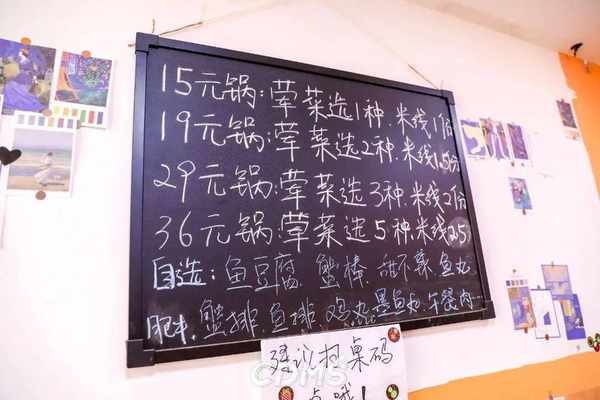 15元锅:荤菜选1种.米线1份
19元锅:荤菜选2种.米线1.5份
29元锅:荤菜选3种.米线2份
36元锅:荤菜选5种.米线2.5
自选:鱼豆腐.蟹棒.甜不辣.鱼丸
肥牛.蟹排.鱼排.鸡丸.墨鱼丸.午餐肉...
建议扫桌码
点哦!
CDMS